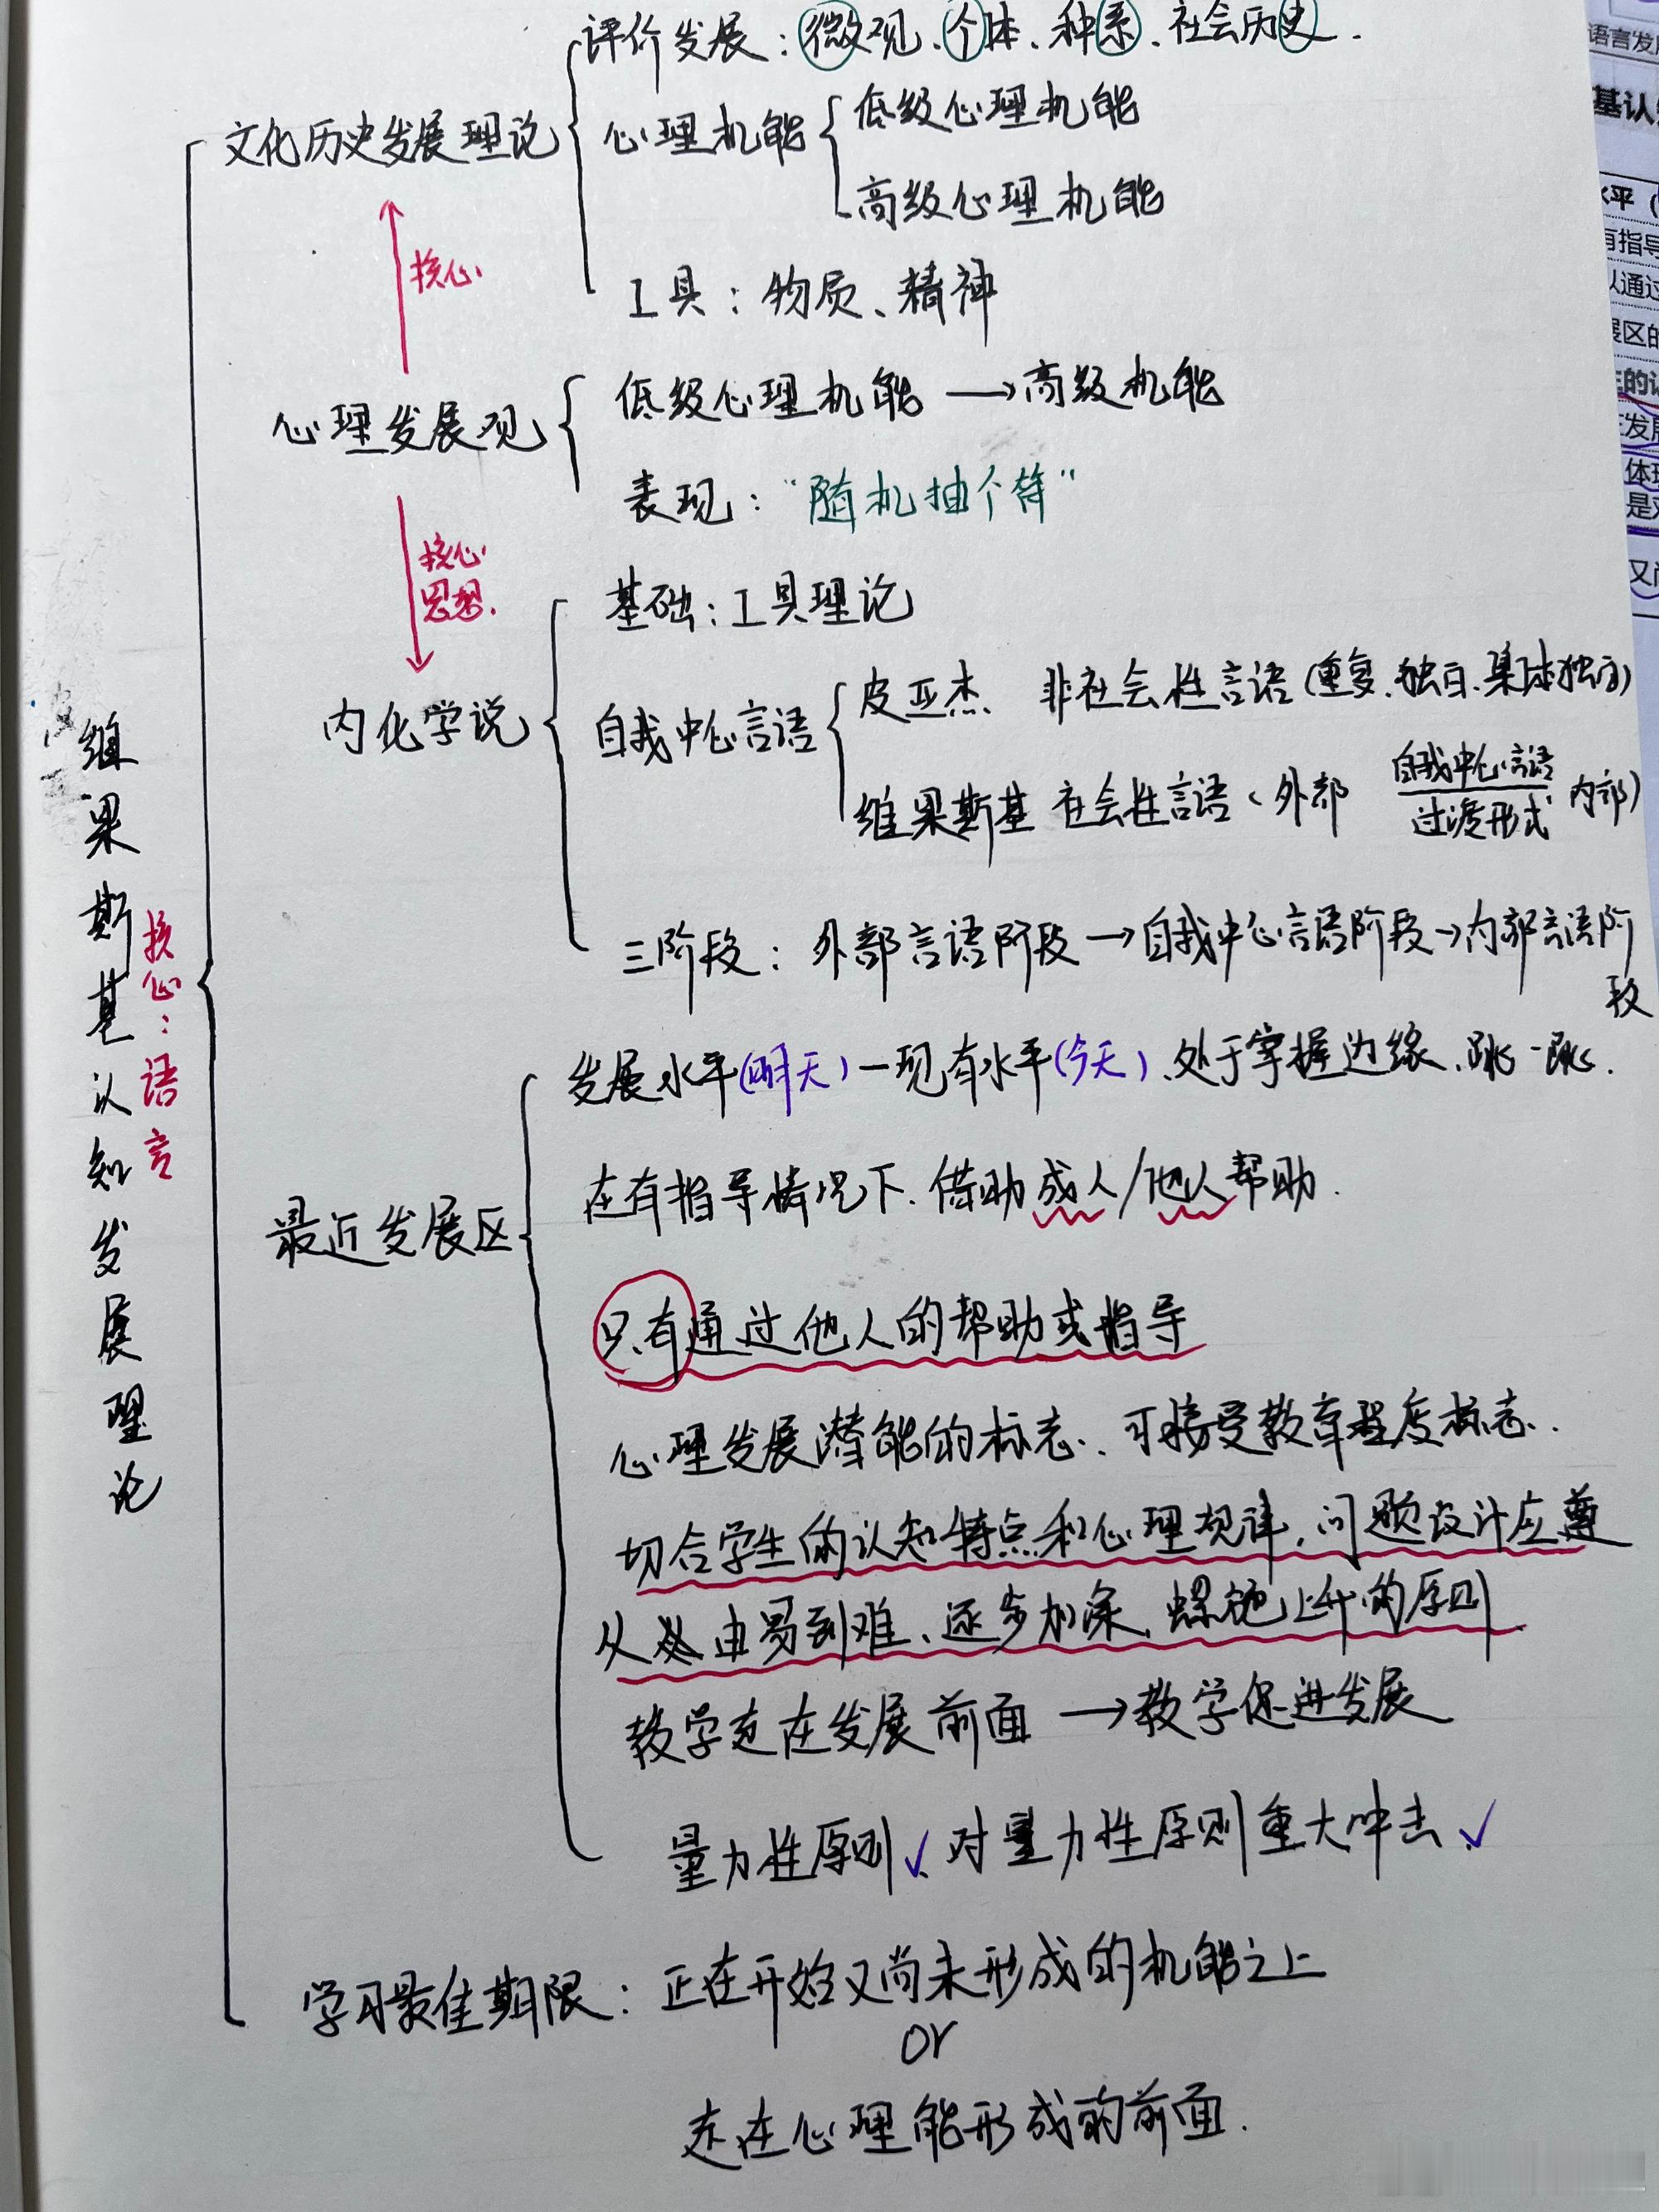 维果斯基认知发展理论
核心：语言
文化历史发展理论
评价发展：微观、个体、种系、社会历史.
心理机能
低级心理机能
高级心理机能
工具：物质、精神
核心
心理发展观
低级心理机能→高级机能
表现：“随机抽个符”
核心
思想.
内化学说
基础：工具理论
自我中心言语
皮亚杰 非社会性言语(重复、独白、集体独白)
维果斯基 社会性言语、外部 自我中心言语 内部)
过渡形式
三阶段：外部言语阶段→自我中心言语阶段→内部言语阶
段
最近发展区
发展水平(明天)—现有水平(今天)、处于掌握边缘、跳一跳.
在有指导情况下.借助成人/他人帮助.
只有通过他人的帮助或指导
心理发展潜能的标志、可接受教育程度标志.
切合学生的认知特点和心理规律,问题设计应遵
从由易到难、逐步加深、螺旋上升的原则
教学走在发展前面→教学促进发展
量力性原则✓、对量力性原则重大冲击✓
学习最佳期限：正在开始又尚未形成的机能之上
or
走在心理能形成的前面.
语言发
基认
水平（
有指导
以通过
展区的
发展
体现
是对
又尚